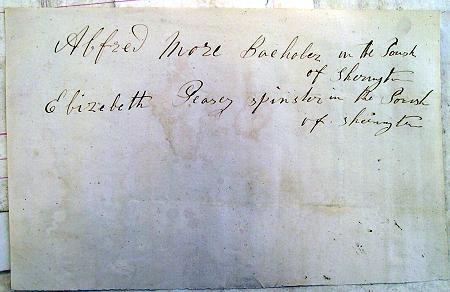 Abfred More Bacholer in the Parish
of Sherington
Ebizebeth Pearcy spinster in the Parish
of Sherington